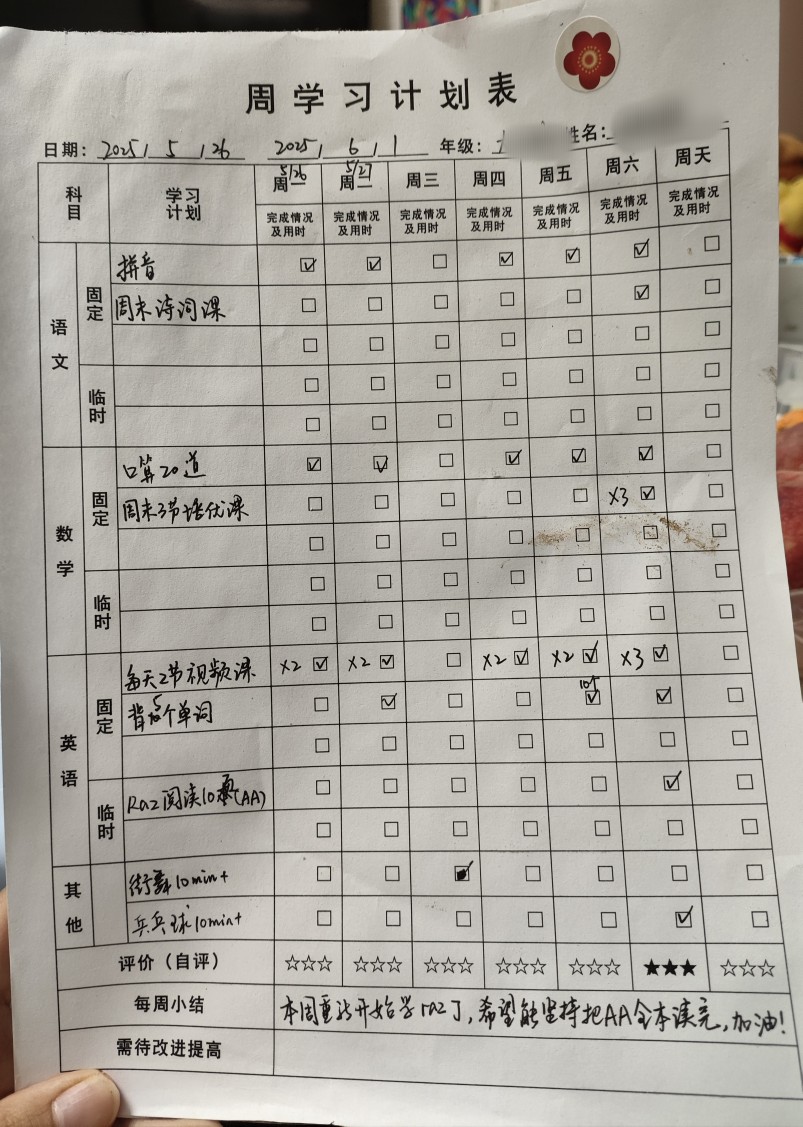 周学习计划表
日期: 2025 / 5 / 26 2025 / 6 / 1 年级: 姓名:
5/26 5/27
科目 学习计划 周一 周二 周三 周四 周五 周六 周天
完成情况及用时 完成情况及用时 完成情况及用时 完成情况及用时 完成情况及用时 完成情况及用时 完成情况及用时
语文 固定 拼音 ☑ ☑ ☐ ☑ ☑ ☑ ☐
周末诗词课 ☐ ☐ ☐ ☐ ☐ ☑ ☐
☐ ☐ ☐ ☐ ☐ ☐ ☐
临时 ☐ ☐ ☐ ☐ ☐ ☐ ☐
☐ ☐ ☐ ☐ ☐ ☐ ☐
数学 固定 口算20道 ☑ ☑ ☐ ☑ ☑ ☑ ☐
周末3节培优课 ☐ ☐ ☐ ☐ ☐ X3 ☑ ☐
☐ ☐ ☐ ☐ ☐ ☐ ☐
临时 ☐ ☐ ☐ ☐ ☐ ☐ ☐
☐ ☐ ☐ ☐ ☐ ☐ ☐
英语 固定 每天2节视频课 X2 ☑ X2 ☑ ☐ X2 ☑ X2 ☑ X3 ☑ ☐
背5个单词 ☐ ☑ ☐ ☐ ☑ ☑ ☐
☐ ☐ ☐ ☐ ☐ ☐ ☐
临时 Raz阅读10(AA) ☐ ☐ ☐ ☐ ☐ ☑ ☐
☐ ☐ ☐ ☐ ☐ ☐ ☐
其他 街舞10min+ ☐ ☐ ☑ ☐ ☐ ☐ ☐
乒乓球10min+ ☐ ☐ ☐ ☐ ☐ ☑ ☐
评价(自评) ☆☆☆ ☆☆☆ ☆☆☆ ☆☆☆ ☆☆☆ ★★★ ☆☆☆
每周小结 本周重新开始学raz了,希望能坚持把AA全本读完,加油!
需待改进提高